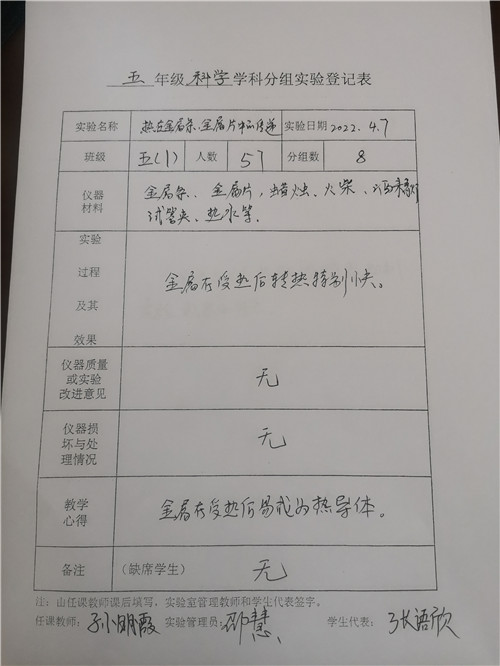 五 年级 科学 学科分组实验登记表
实验名称 热在金属条、金属片中的传递 实验日期 2022.4.7
班级 五(1) 人数 57 分组数 8
仪器 金属条、金属片,蜡烛、火柴、酒精灯
材料 试管夹、热水等、
实验
过程 金属在受热后转热特别快。
及其
效果
仪器质量
或实验 无
改进意见
仪器损
坏与处 无
理情况
教学 金属在受热后易成为热导体。
心得
备注 (缺席学生) 无
注:由任课教师课后填写,实验室管理教师和学生代表签字。
任课教师:孙小明霞 实验管理员:邵慧、 学生代表:张语欣